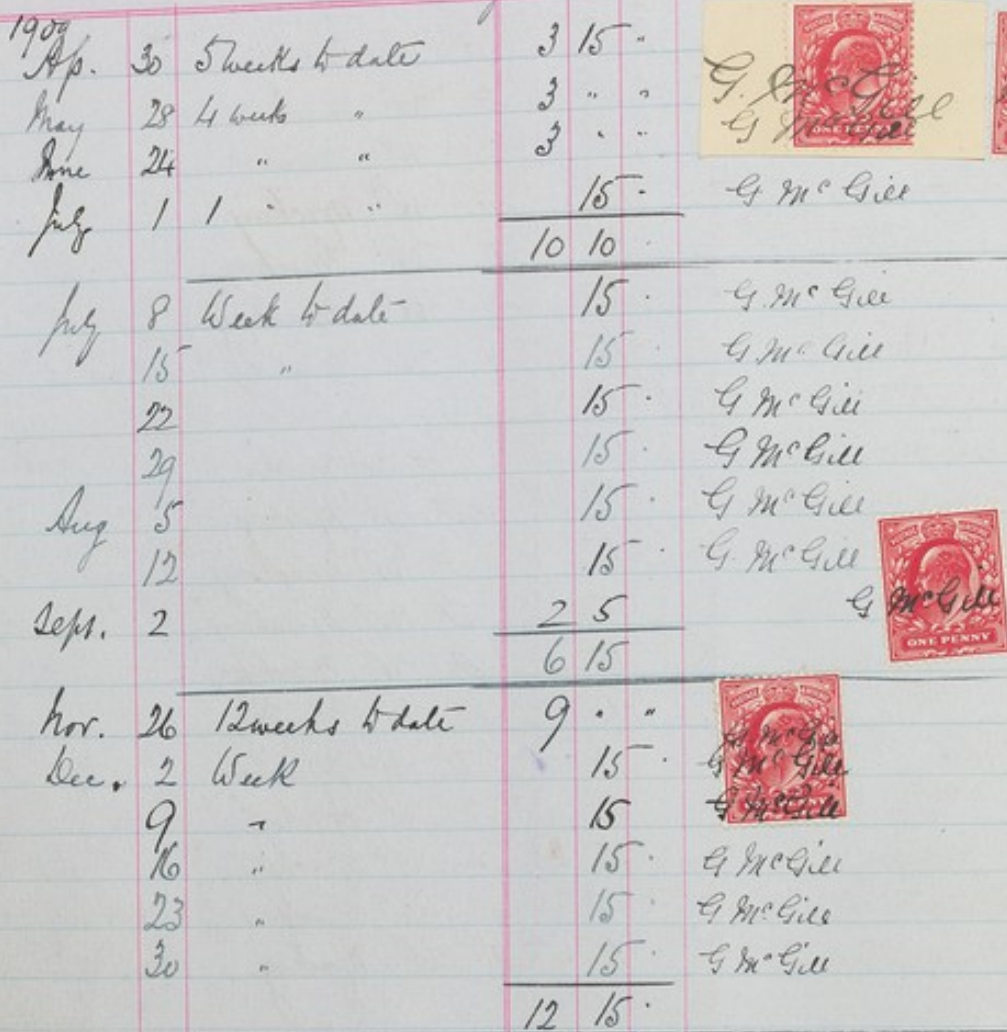 1909
Ap. 30 5 weeks to date 3 15 "
G. McGill
May 28 4 weeks " 3 " "
G McGill
June 24 " " 3 " "
July 1 1 " " 15 .
G Mc Gill
10 10 .
July 8 Week to date 15 .
G. Mc Gill
15 " 15 .
G Mc Gill
22 15 .
G Mc Gill
29 15 .
G McGill
Aug 5 15 .
G McGill
12 15 .
G. McGill
Sept. 2 2 5
G McGill
6 15
Nov. 26 12 weeks to date 9 . "
G McGill
Dec. 2 Week 15 .
G McGill
9 " 15
G McGill
16 " 15 .
G McGill
23 " 15 .
G McGill
30 " 15 .
G McGill
12 15 .
ONE PENNY
ONE PENNY